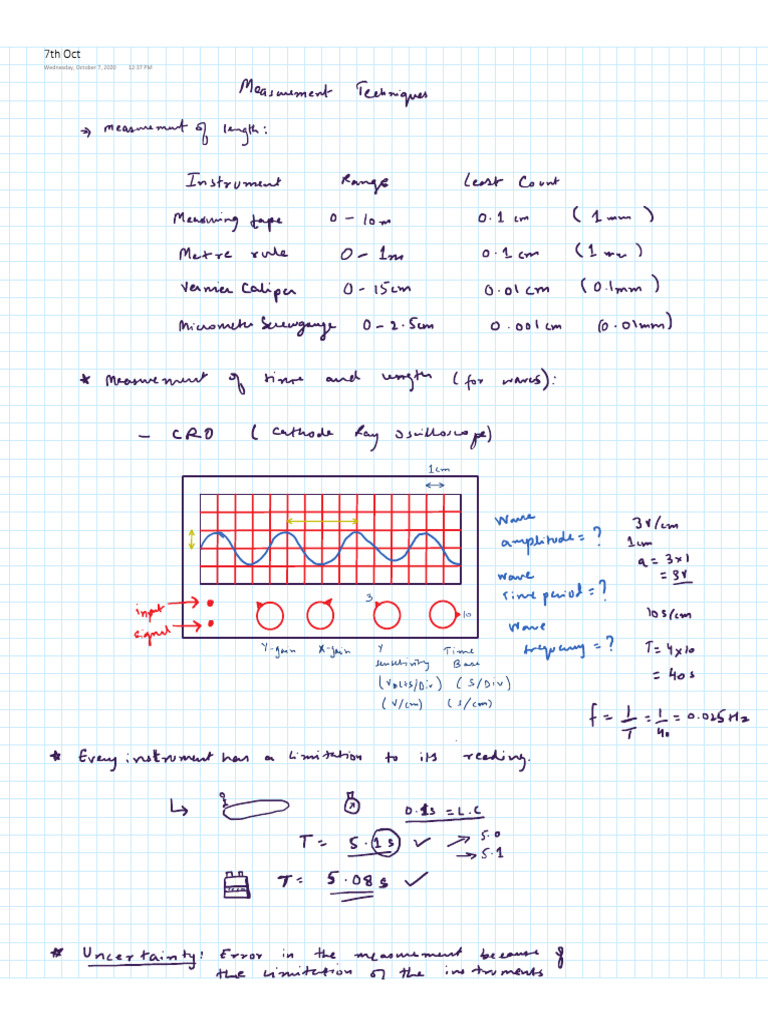 7th Oct
Wednesday, October 7, 2020 12:37 PM
Measurement Techniques
→ Measurement of length:
Instrument Range Least Count
Measuring tape 0 – 10m 0.1 cm (1 mm)
Metre rule 0 – 1m 0.1 cm (1 mm)
Vernier Caliper 0 – 15cm 0.01 cm (0.1mm)
Micrometer Screwgauge 0 – 2.5cm 0.001 cm (0.01mm)
* Measurement of time and length (for waves):
– CRO (Cathode Ray Oscilloscope)
1cm
Wave amplitude = ?
3V/cm
1cm
a = 3x1
= 3V
Wave Time period = ?
10s/cm
T = 4x10
= 40s
Wave frequency = ?
f = 1/T = 1/40 = 0.025Hz
input signal
3
10
Y-gain X-gain Y sensitivity Time Base
(Volts/Div) (S/Div)
(V/cm) (s/cm)
* Every instrument has a limitation to its reading.
0.1s = L.C
T = 5.1s ✓ → 5.0
→ 5.1
T = 5.08s ✓
* Uncertainty: Error in the measurement because of
the limitation of the instruments